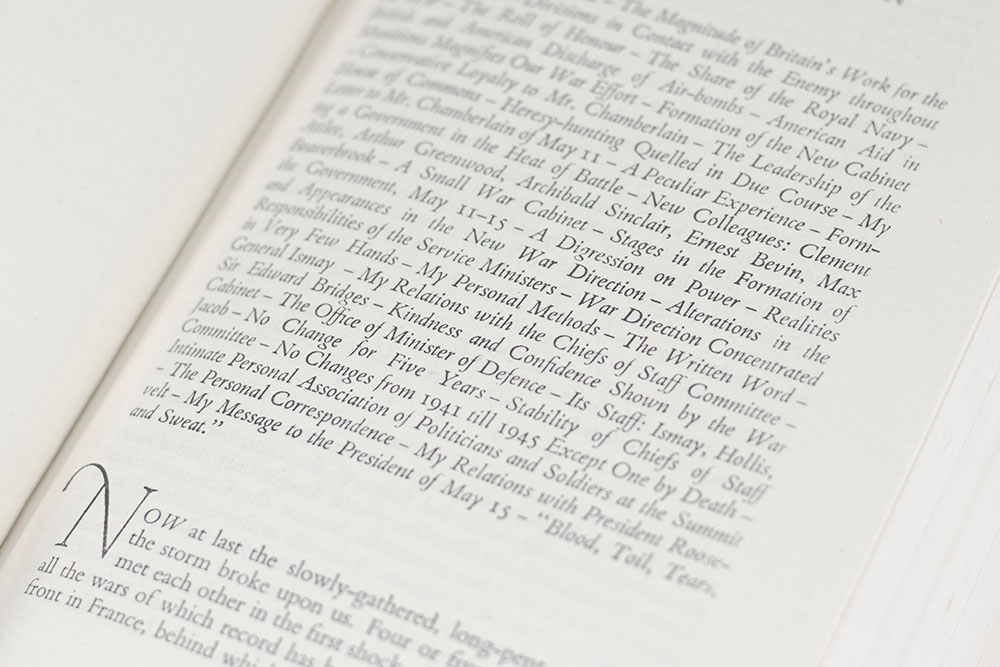 – The Magnitude of Britain's Work for the
Divisions in Contact with the Enemy throughout
– The Roll of Honour – The Share of the Royal Navy –
British and American Discharge of Air-bombs – American Aid in
Munitions Magnifies Our War Effort – Formation of the New Cabinet
– Conservative Loyalty to Mr. Chamberlain – The Leadership of the
House of Commons – Heresy-hunting Quelled in Due Course – My
Letter to Mr. Chamberlain of May 11 – A Peculiar Experience – Form-
ing a Government in the Heat of Battle – New Colleagues: Clement
Attlee, Arthur Greenwood, Archibald Sinclair, Ernest Bevin, Max
Beaverbrook – A Small War Cabinet – Stages in the Formation of
the Government, May 11–15 – A Digression on Power – Realities
and Appearances in the New War Direction – Alterations in the
Responsibilities of the Service Ministers – War Direction Concentrated
in Very Few Hands – My Personal Methods – The Written Word –
General Ismay – My Relations with the Chiefs of Staff Committee –
Sir Edward Bridges – Kindness and Confidence Shown by the War
Cabinet – The Office of Minister of Defence – Its Staff: Ismay, Hollis,
Jacob – No Change for Five Years – Stability of Chiefs of Staff
Committee – No Changes from 1941 till 1945 Except One by Death –
Intimate Personal Association of Politicians and Soldiers at the Summit
– The Personal Correspondence – My Relations with President Roose-
velt – My Message to the President of May 15 – “Blood, Toil, Tears,
and Sweat.”
NOW at last the slowly-gathered, long-pent
the storm broke upon us. Four or five
met each other in the first shock
all the wars of which record has
front in France, behind which